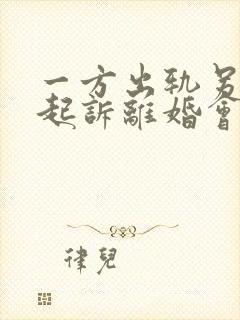 一方出軌另
起訴離婚會
律兒